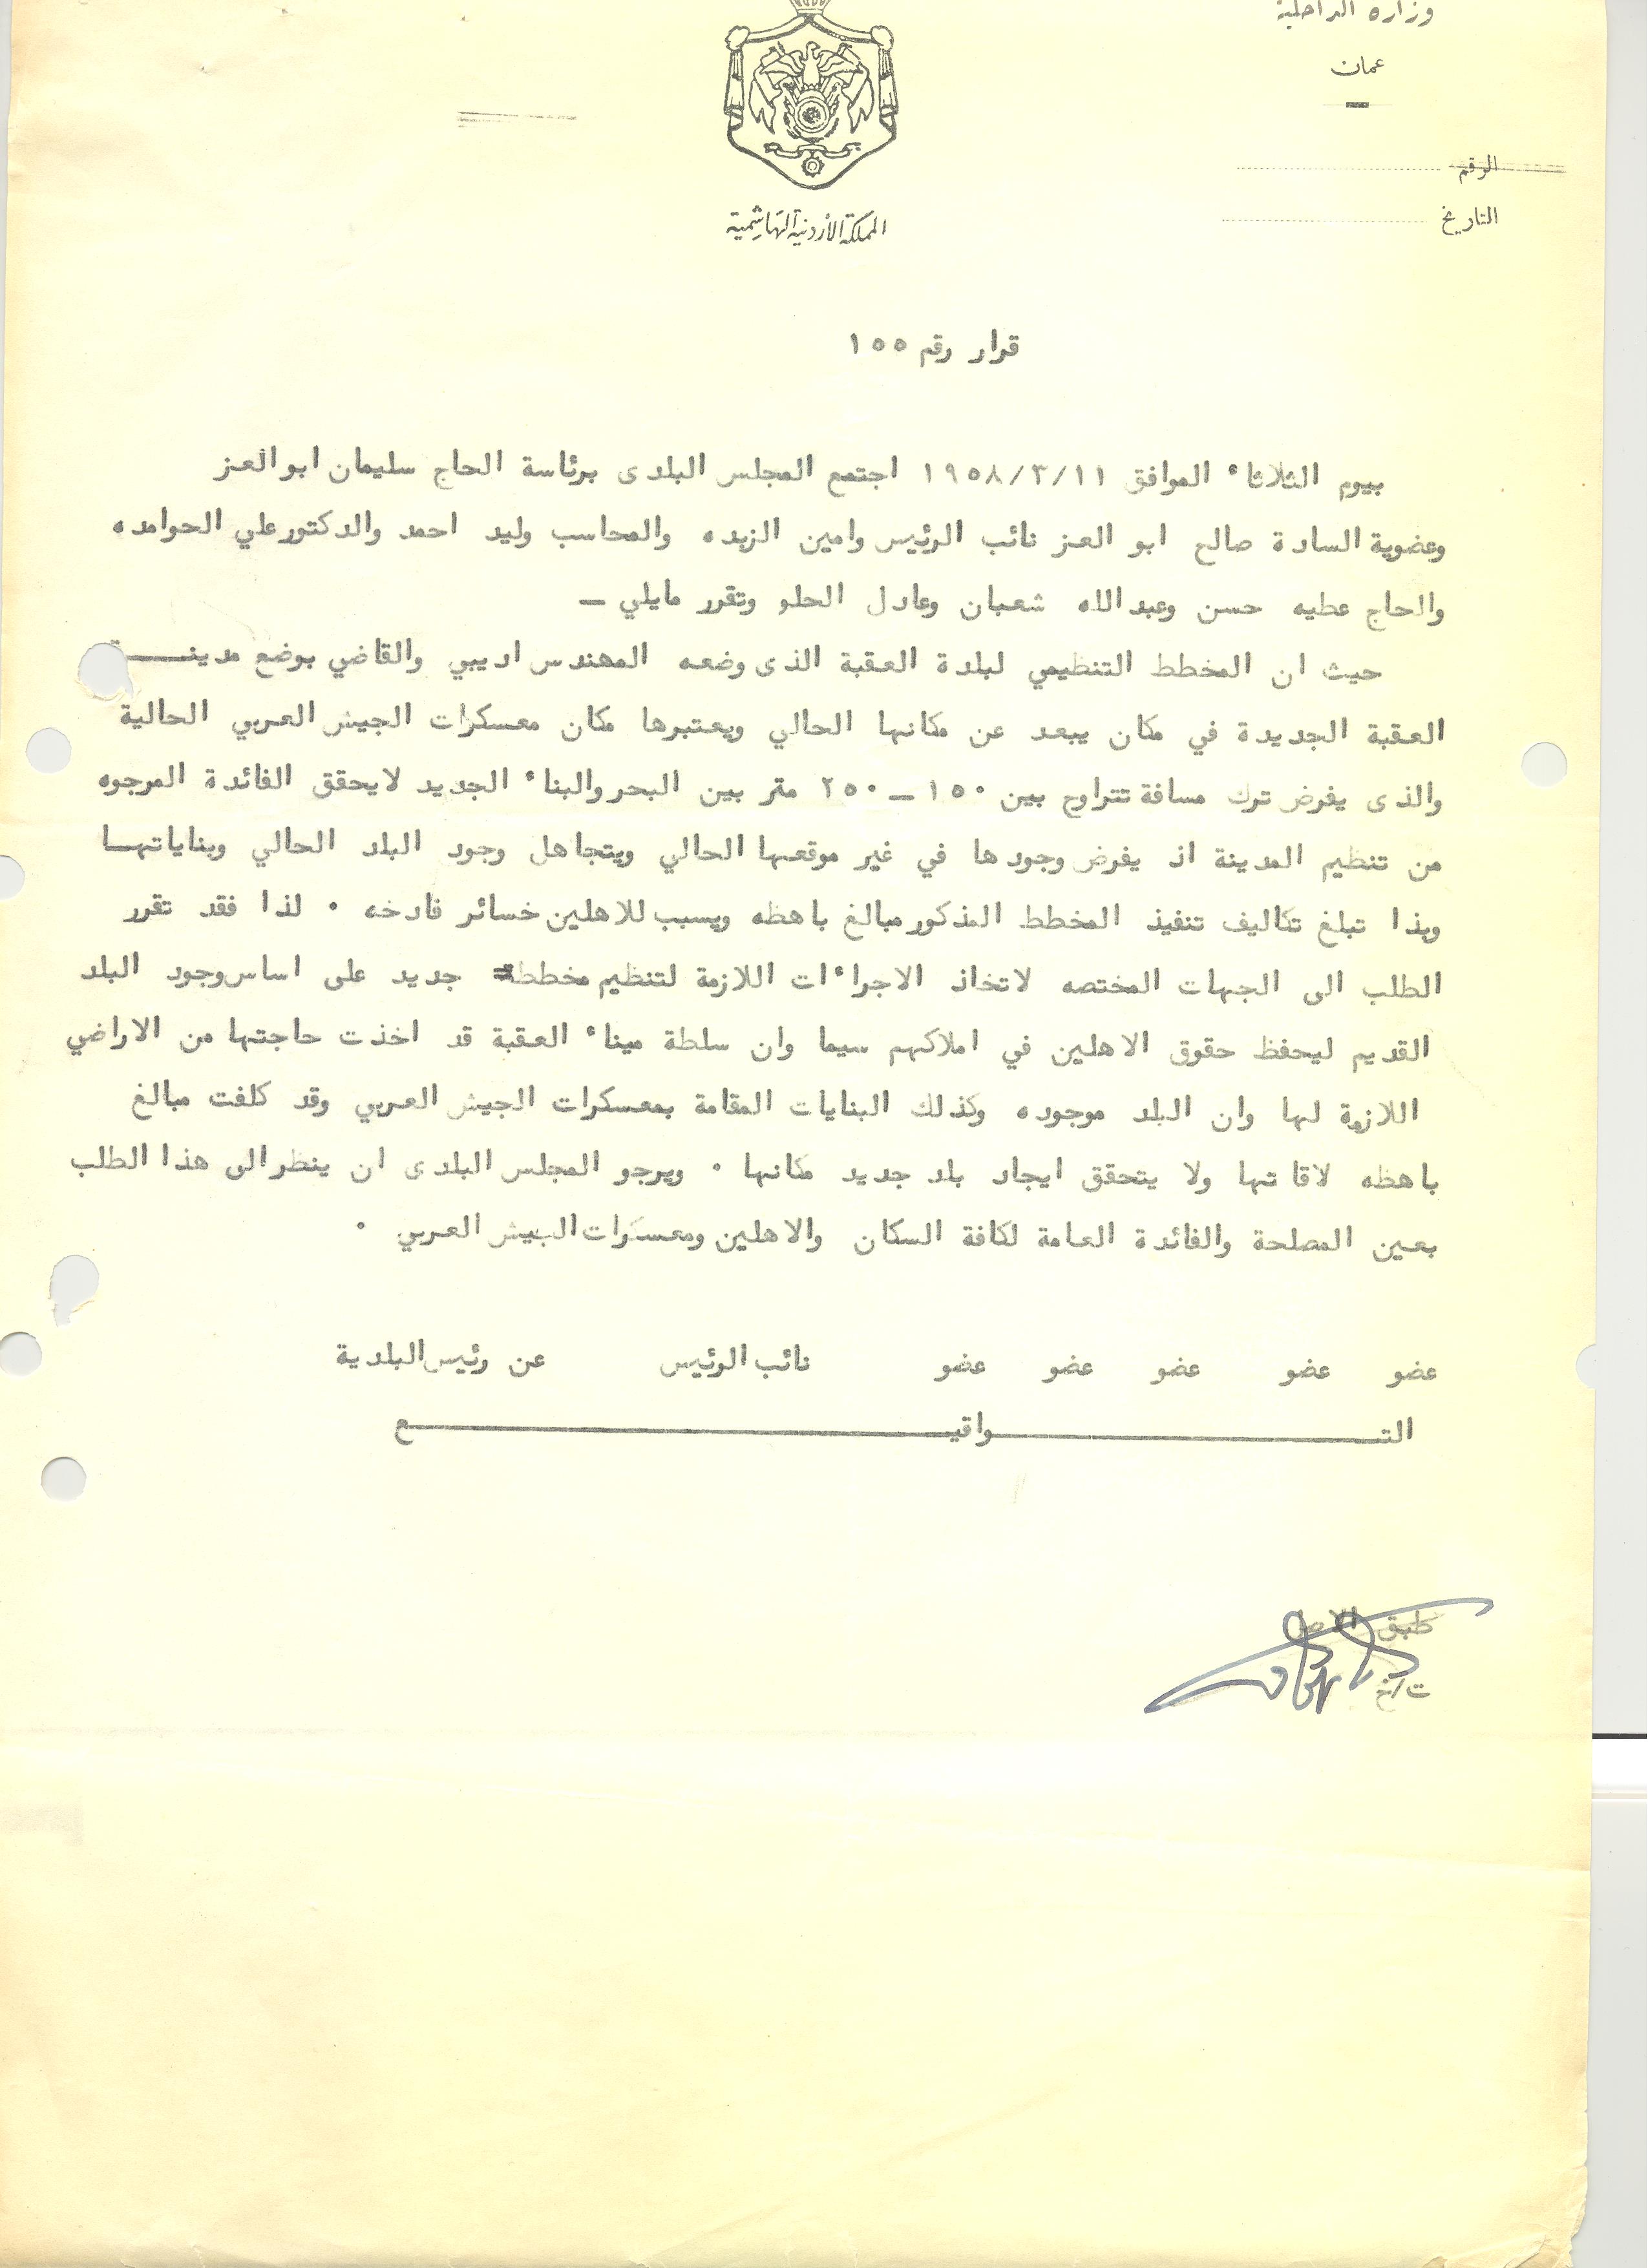 وزارة الداخلية
عمان
الرقم
التاريخ
المملكة الأردنية الهاشمية
قرار رقم ١٥٥
بيوم الثلاثاء الموافق ١٩٥٨/٣/١١ اجتمع المجلس البلدى برئاسة الحاج سليمان ابو العز
وعضوية السادة صالح ابو العز نائب الرئيس وامين الزبده والمحاسب وليد احمد والدكتور علي الحوامده
والحاج عطيه حسن وعبد الله شعبان وعادل الحلو وتقرر مايلي –
حيث ان المخطط التنظيمي لبلدة العقبة الذى وضعه المهندس اديبي والقاضي بوضع مدينـــــة
العقبة الجديدة في مكان يبعد عن مكانها الحالي ويعتبرها مكان معسكرات الجيش العربي الحالية
والذى يفرض ترك مسافة تتراوح بين ١٥٠ – ٢٥٠ متر بين البحر والبناء الجديد لايحقق الفائدة المرجوه
من تنظيم المدينة اذ يفرض وجودها في غير موقعها الحالي ويتجاهل وجود البلد الحالي وبناياتهـا
وبذا تبلغ تكاليف تنفيذ المخطط المذكور مبالغ باهظه ويسبب للاهلين خسائر فادحه ٠ لذا فقد تقرر
الطلب الى الجهات المختصه لاتخاذ الاجراءات اللازمة لتنظيم مخطط جديد على اساس وجود البلد
القديم ليحفظ حقوق الاهلين في املاكهم سيما وان سلطة ميناء العقبة قد اخذت حاجتها من الاراضي
اللازمة لها وان البلد موجوده وكذلك البنايات المقامة بمعسكرات الجيش العربي وقد كلفت مبالغ
باهظه لاقاتها ولا يتحقق ايجاد بلد جديد مكانها ٠ ويرجو المجلس البلدى ان ينظر الى هذا الطلب
بعين المصلحة والفائدة العامة لكافة السكان والاهلين ومعسكرات الجيش العربي ٠
عضو عضو عضو عضو عضو نائب الرئيس عن رئيس البلدية
التـــــــــــواقيـــــــــــع
طبق الاصل
ت/خ